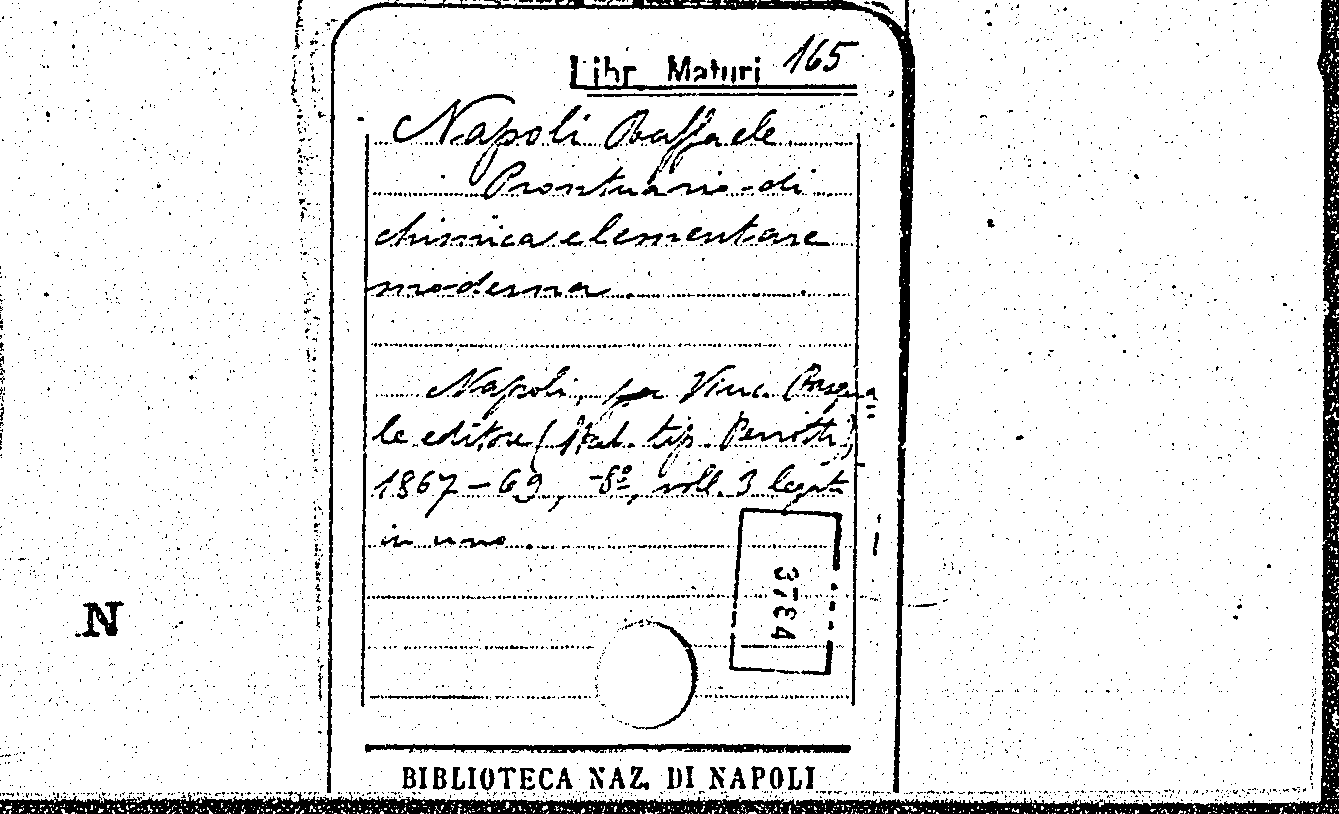 Libr. Maturi 165
Napoli Raffaele
Prontuario di
chimica elementare
moderna.
Napoli, per Vinc. Pasqua=
le editore (Stab. tip. Perrotti)
1867-69, -8º, voll. 3 legati
in uno.
N
BIBLIOTECA NAZ. DI NAPOLI